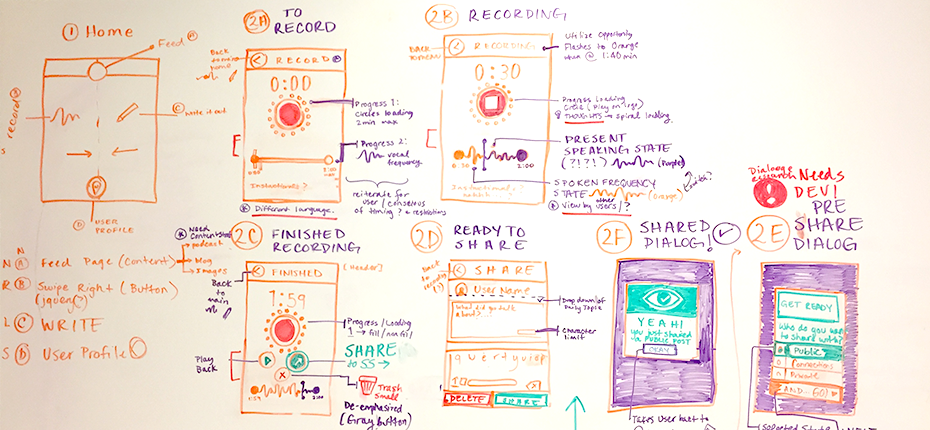 1 Home
Feed A
record B
C write it out
D USER
PROFILE
N A Feed Page (Content)
podcast
blog
Images
R B Swipe Right (Button)
(jquery?)
L C WRITE
S D User Profile
2A TO
RECORD
Back
< RECORD
0:00
Progress 1:
Circles loading
2 min max
Progress 2:
vocal
frequency.
0:00
2:00
Instructions?
Different language.
reiterate for
user / consensus
of timing? + restrictions
2B RECORDING
Back
< RECORDING
Utilize opportunity
Flashes to Orange
when @ 1:40 min
0:30
Progress Loading
Circle (Play on logo)
THOUGHTS → spiral loading
PRESENT
SPEAKING STATE
(?!?!) (Purple)
0:30
2:00
SPOKEN FREQUENCY
STATE (Orange)
Switch?
View by other users/?
2C FINISHED
RECORDING
< FINISHED
[Header]
Back
to
main
1:59
Progress/Loading
1 → fill/non fill
SHARE
to SS →
Play
Back
X
Trash
Small
1:59
2:00
De-emphasized
(Gray button)
2D READY TO
SHARE
Back
< SHARE
User Name
Drop down of
Daily Topic
What did you talk
about?...
Character
limit
q w e r t y u i o p
DELETE
SHARE
2F SHARED
DIALOG!
YEAH!
You just shared
via PUBLIC POST
OKAY
Takes user back to
Dialog
research
Needs
DEV!
2E PRE
SHARE
DIALOG
GET READY
Who do you want
to share with?
Public
Connections
Private
AND... GO!